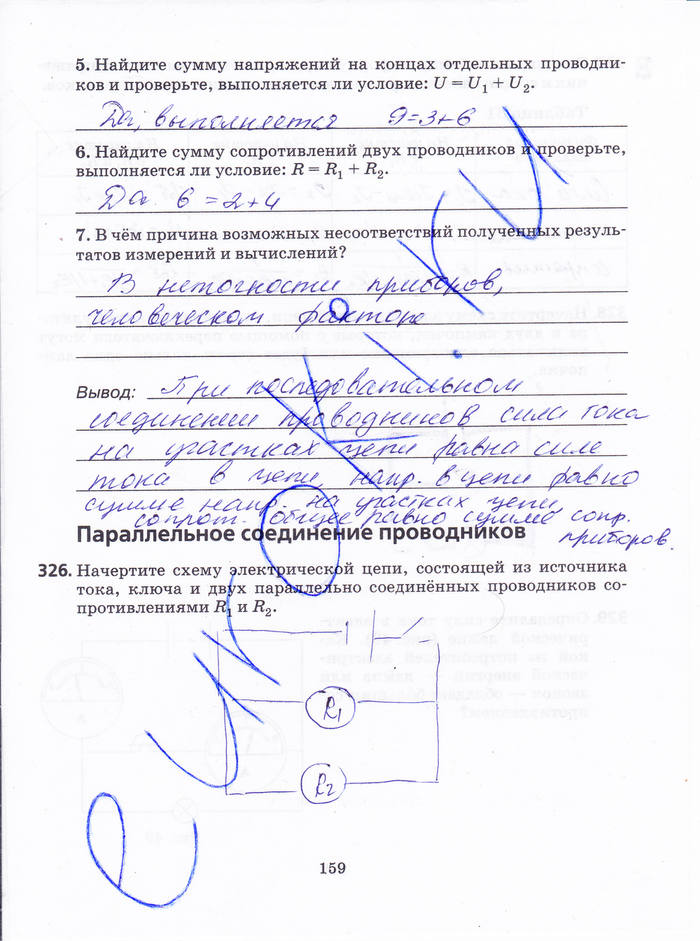 5. Найдите сумму напряжений на концах отдельных проводни-
ков и проверьте, выполняется ли условие: U = U₁ + U₂.
Да, выполняется 9=3+6
6. Найдите сумму сопротивлений двух проводников и проверьте,
выполняется ли условие: R = R₁ + R₂.
Да 6 = 2+4
7. В чём причина возможных несоответствий полученных резуль-
татов измерений и вычислений?
В неточности приборов,
человеческом факторе
Вывод: При последовательном
соединении проводников сила тока
на участках цепи равна силе
тока в цепи, напр. в цепи равно
сумме напр. на участках цепи,
сопрот. общее равно сумме сопр.
приборов.
Параллельное соединение проводников
326. Начертите схему электрической цепи, состоящей из источника
тока, ключа и двух параллельно соединённых проводников со-
противлениями R₁ и R₂.
R₁
R₂
159